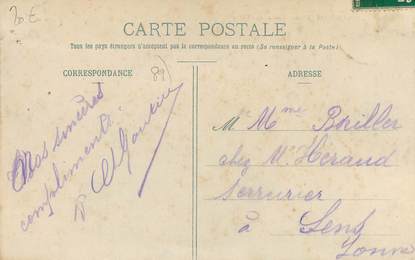 20 €
CARTE POSTALE
Tous les pays étrangers n'acceptent pas la correspondance au recto (Se renseigner à la Poste)
CORRESPONDANCE
89)
ADRESSE
Nos sincères
compliments.
M Mme
chez Mr Héraud
Serrurier
à Sens
Yonne